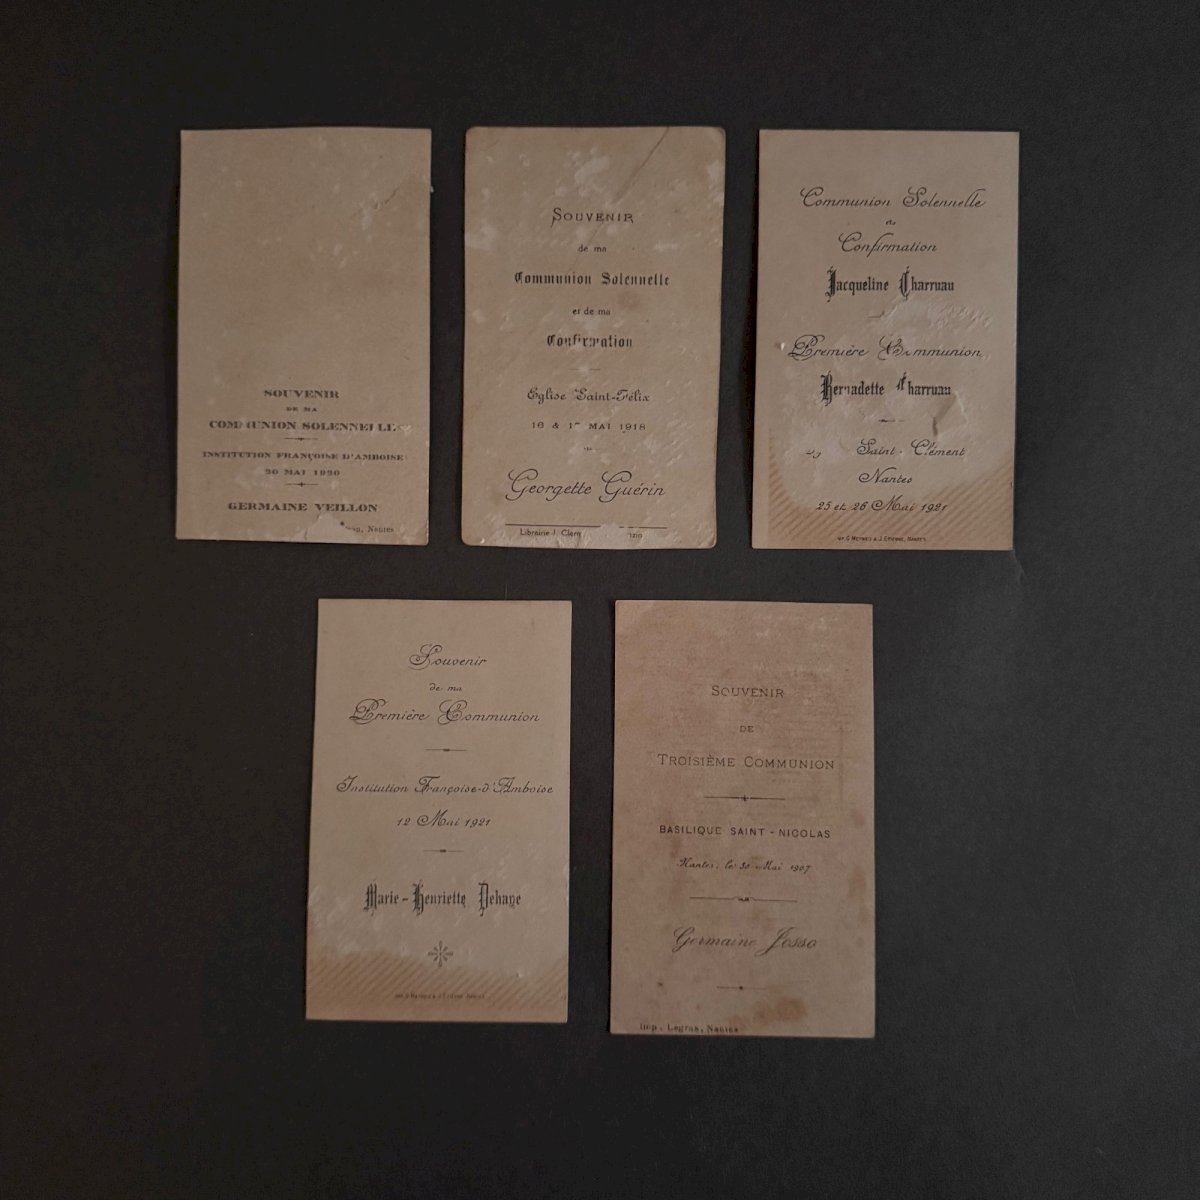 SOUVENIR
DE MA
COMMUNION SOLENNELLE
INSTITUTION FRANÇOISE D'AMBOISE
20 MAI 1920
GERMAINE VEILLON
Nantes
SOUVENIR
de ma
Communion Solennelle
et de ma
Confirmation
Eglise Saint-Félix
16 & 17 MAI 1918
Georgette Guérin
Librairie J.
Communion Solennelle
et
Confirmation
Jacqueline Charruau
Première Communion
Bernadette Charruau
Saint-Clément
Nantes
25 et 26 Mai 1921
IMP. G. MEYNIEU & J. ETIENNE, NANTES
Souvenir
de ma
Première Communion
Institution Françoise-d'Amboise
12 Mai 1921
Marie-Henriette Dehaye
SOUVENIR
DE
TROISIÈME COMMUNION
BASILIQUE SAINT-NICOLAS
Nantes, le 30 Mai 1907
Germaine Josso
Imp. Legras, Nantes